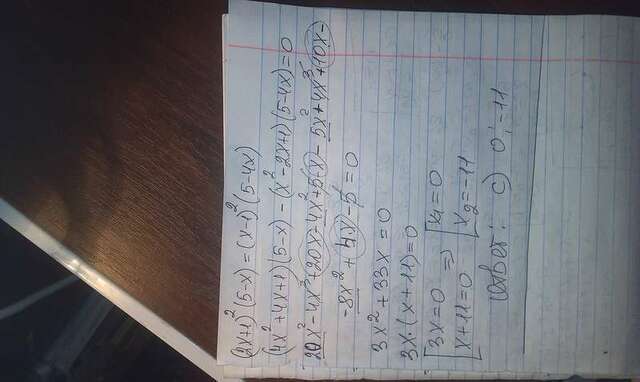 (2x+1)²(5-x) = (x-1)²(5-4x)
(4x²+4x+1)(5-x) - (x²-2x+1)(5-4x)=0
20x²-4x³+20x-4x²+5-x-5x²+4x³+10x-
-8x²+4x-5=0
3x²+33x=0
3x·(x+11)=0
[3x=0 => [x₁=0
[x+11=0 [x₂=-11
Ответ: c) 0; -11